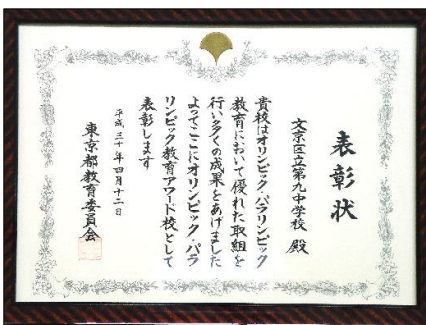 表彰状
文京区立第九中学校 殿
貴校はオリンピック・パラリンピック
教育において優れた取組を
行い多くの成果をあげました
よってここにオリンピック・パラ
リンピック教育アワード校として
表彰します
平成三十年四月十二日
東京都教育委員会